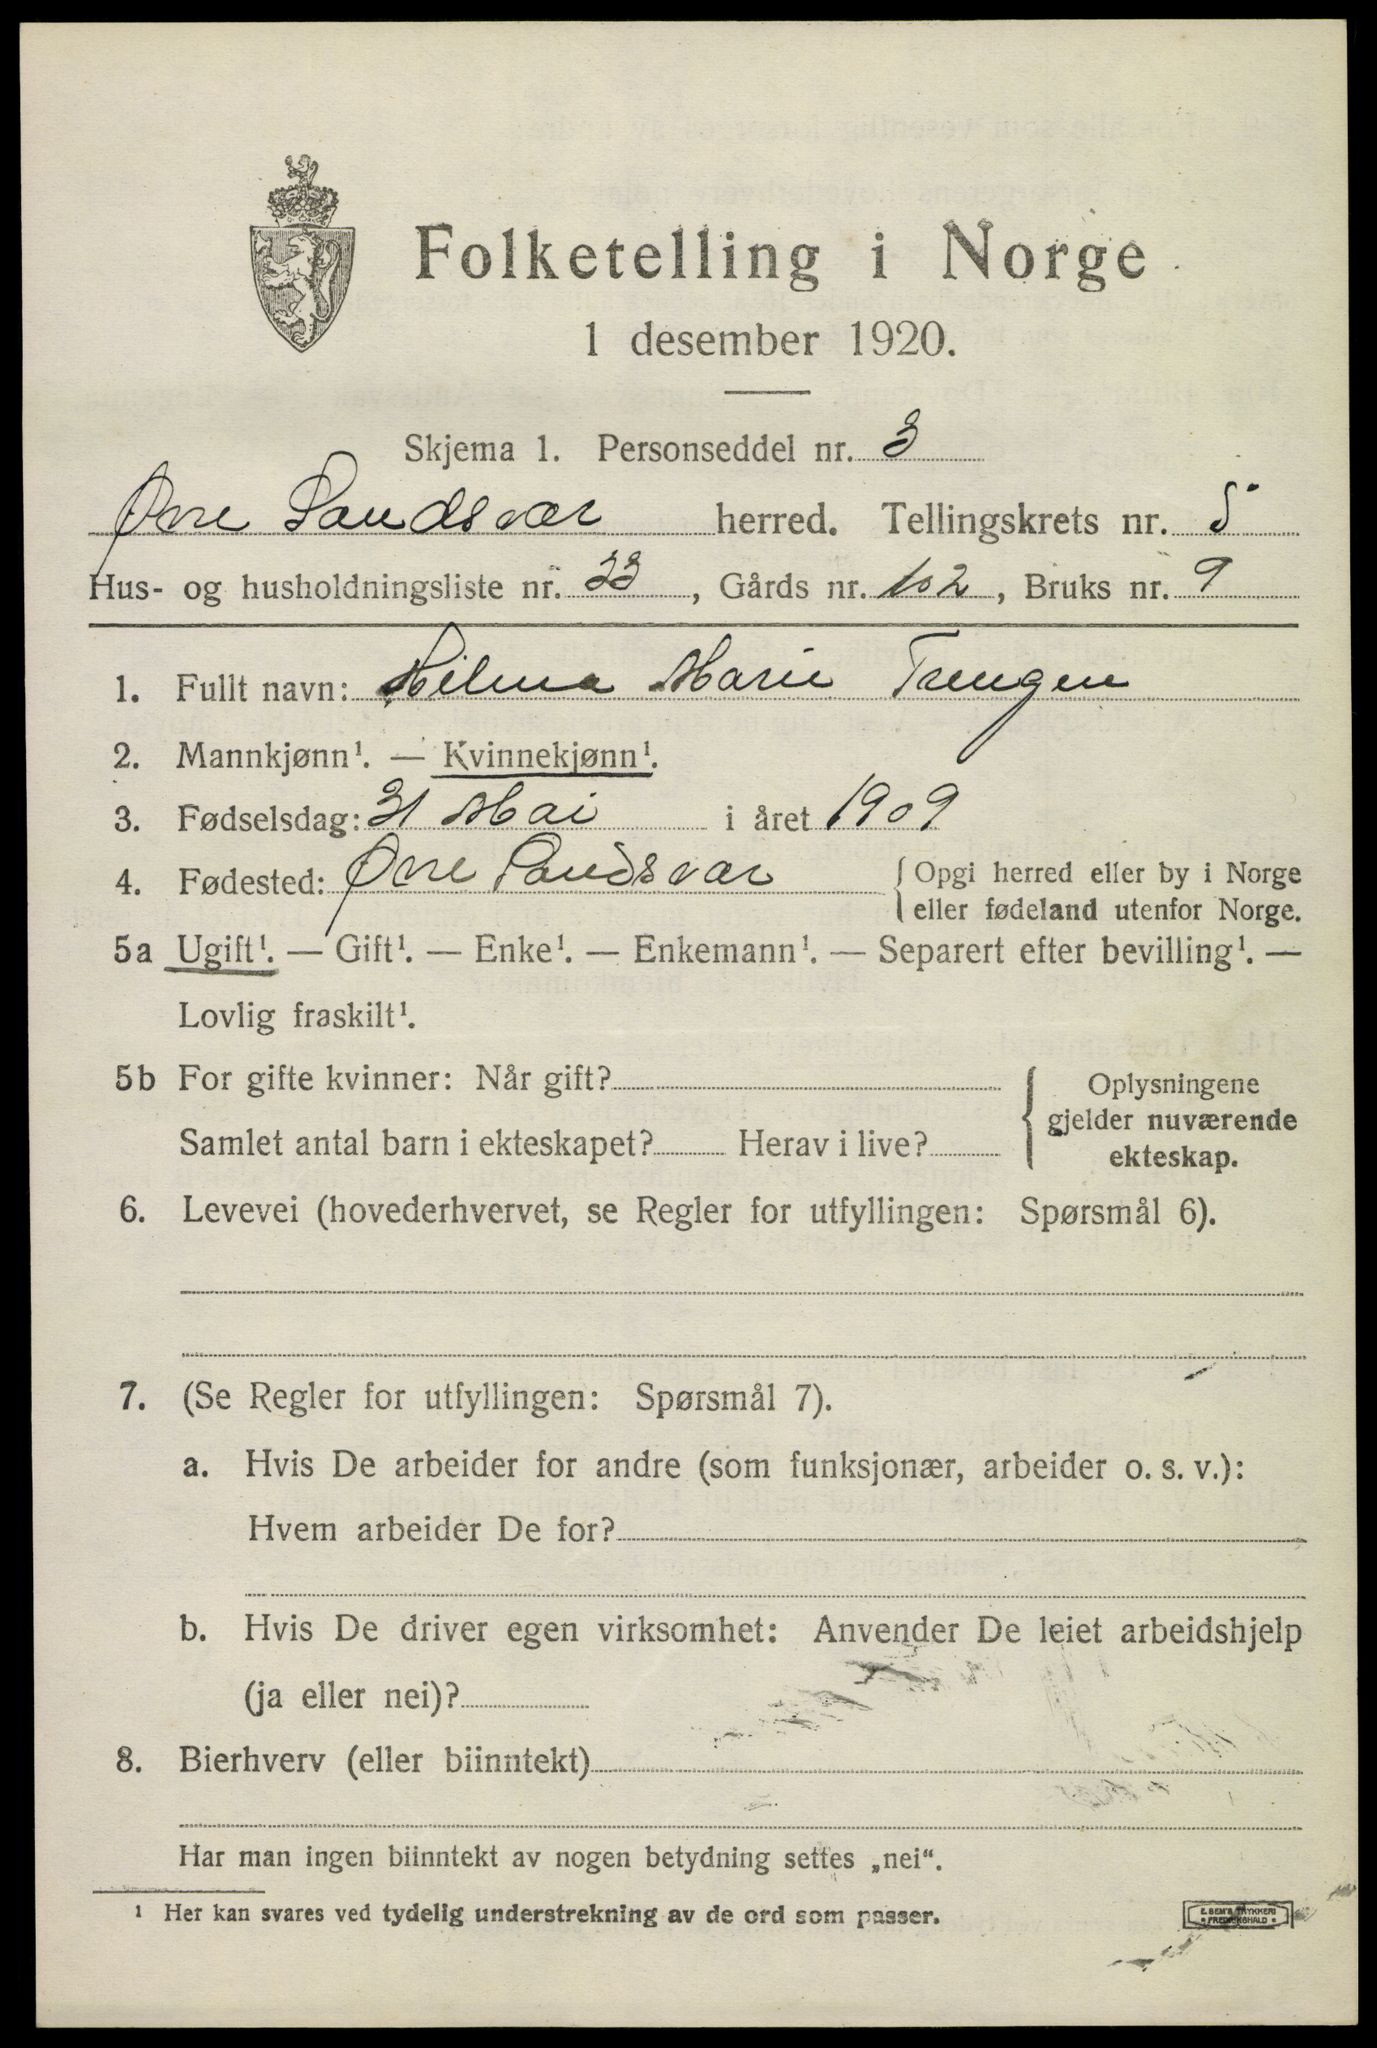 Folketelling i Norge
1 desember 1920.
Skjema 1. Personseddel nr. 3
Øvre Sandsvær herred. Tellingskrets nr. 5
Hus- og husholdningsliste nr. 33, Gårds nr. 102, Bruks nr. 9
1. Fullt navn: Hilma Marie Trengen
2. Mannkjønn¹. — Kvinnekjønn¹.
3. Fødselsdag: 31 Mai i året 1909
4. Fødested: Øvre Sandsvær { Opgi herred eller by i Norge
eller fødeland utenfor Norge.
5a Ugift¹. — Gift¹. — Enke¹. — Enkemann¹. — Separert efter bevilling¹. —
Lovlig fraskilt¹.
5b For gifte kvinner: Når gift? { Oplysningene
gjelder nuværende
Samlet antal barn i ekteskapet? Herav i live?
ekteskap.
6. Levevei (hovederhvervet, se Regler for utfyllingen: Spørsmål 6).
7. (Se Regler for utfyllingen: Spørsmål 7).
a. Hvis De arbeider for andre (som funksjonær, arbeider o. s. v.):
Hvem arbeider De for?
b. Hvis De driver egen virksomhet: Anvender De leiet arbeidshjelp
(ja eller nei)?
8. Bierhverv (eller biinntekt)
Har man ingen biinntekt av nogen betydning settes „nei“.
¹ Her kan svares ved tydelig understrekning av de ord som passer.
E. SEM'S TRYKKERI
FREDRIKSHALD